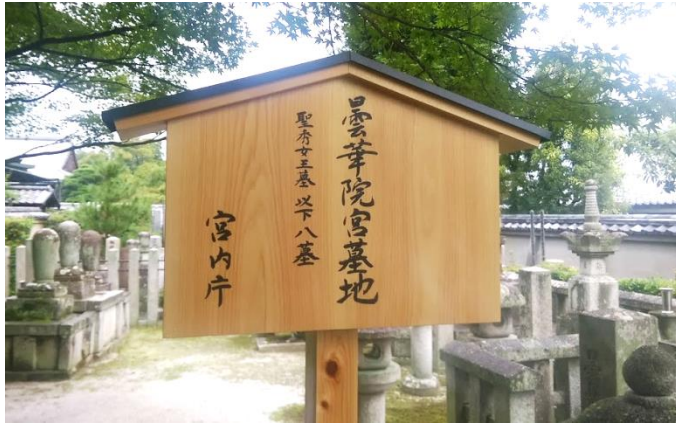 曇華院宮墓地
聖秀女王墓 以下八墓
宮内庁